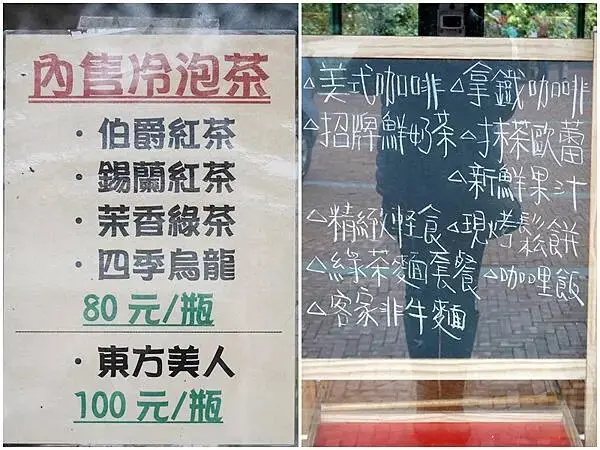 內售冷泡茶
·伯爵紅茶
·錫蘭紅茶
·茉香綠茶
·四季烏龍
80元/瓶
·東方美人
100元/瓶
△美式咖啡 △拿鐵咖啡
△招牌鮮奶茶 △抹茶歐蕾
△新鮮果汁
△精緻輕食 △現烤鬆餅
△綠茶麵套餐 △咖哩飯
△客家非牛麵